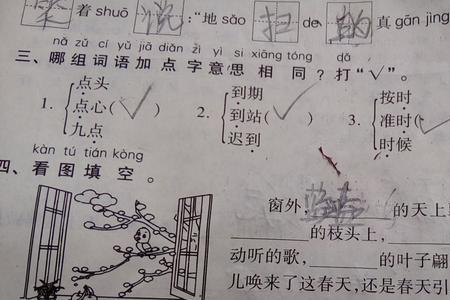 笑 着 shuō 说 :“地 sǎo 扫 de 的 真 gān jìng
nǎ zǔ cí yǔ jiā diǎn zì yì si xiāng tóng dǎ
三、哪组词语加点字意思相同?打“√”。
点头 到期 按时
1. 点心(√) 2. 到站(√) 3. 准时(√
九点 迟到 时候
kàn tú tián kòng
四、看图填空。
窗外, 的天上
的枝头上,
动听的歌, 的叶子翩
儿唤来了这春天,还是春天引